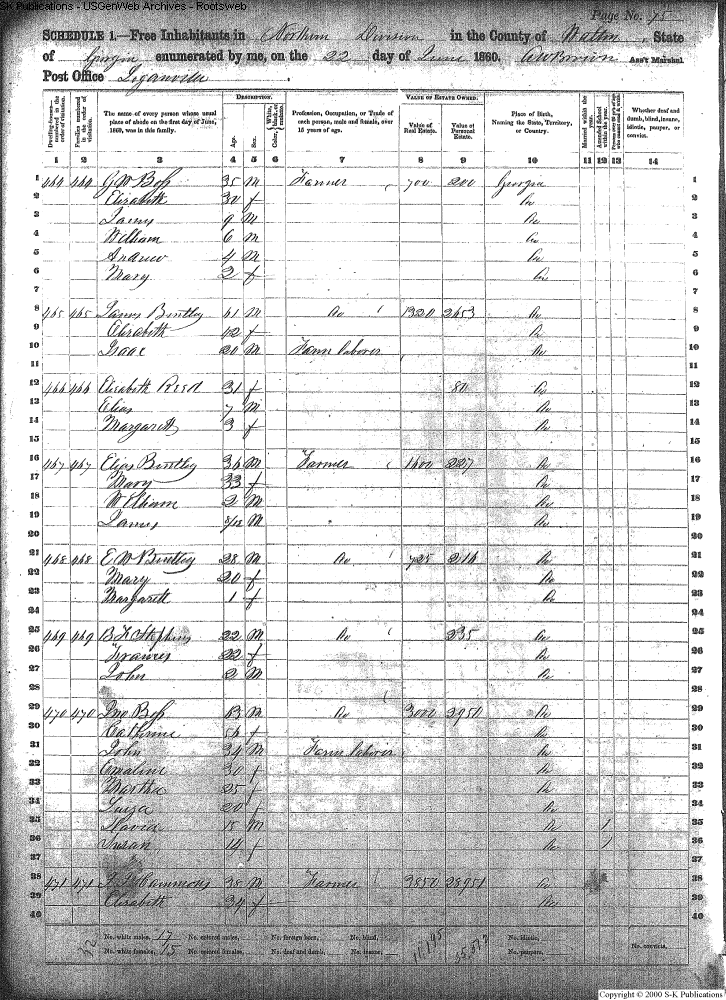 S-K Publications - USGenWeb Archives - Rootsweb
Page No. 75
SCHEDULE 1.—Free Inhabitants in Northern Division in the County of Walton, State
of Georgia enumerated by me, on the 22 day of June 1860. Ass't Marshal.
Post Office
DESCRIPTION. VALUE OF ESTATE OWNED.
Dwelling-houses—numbered in the order of visitation.
Families numbered in the order of visitation.
The name of every person whose usual place of abode on the first day of June, 1860, was in this family.
Age. Sex. Color,
Profession, Occupation, or Trade of each person, male and female, over 15 years of age.
Value of Real Estate. Value of Personal Estate.
Place of Birth, Naming the State, Territory, or Country.
Married within the year.
Attended School within the year.
Whether deaf and dumb, blind, insane, idiotic, pauper, or convict.
1 2 3 4 5 6 7 8 9 10 11 12 13 14
1 464 464 G W Boss 35 M Farmer 700 200 Georgia 1
2 Elizabeth 30 f Do 2
3 9 M Do 3
4 William 6 M Do 4
5 Andrew 4 M Do 5
6 Mary 2 f Do 6
7 7
8 465 465 James Bentley 61 M Do 1320 2653 Do 8
9 Elizabeth 42 f Do 9
10 Isaac 20 M Farm laborer Do 10
11 11
12 466 466 Elizabeth Reed 31 f 80 Do 12
13 Elias 7 M Do 13
14 Margarett 3 f Do 14
15 15
16 467 467 Elias Bentley 36 M Farmer 1600 227 Do 16
17 Mary 33 f Do 17
18 William 2 M Do 18
19 James M Do 19
20 20
21 468 468 E W Bentley 28 M Do 725 216 Do 21
22 Mary 20 f Do 22
23 Margarett 1 f Do 23
24 24
25 469 469 Stephens 22 M Do 235 Do 25
26 Frances 22 f Do 26
27 John 2 M Do 27
28 28
29 470 470 Jno Boss 63 M Do 3000 3950 Do 29
30 Catherine 56 f Do 30
31 John 34 M Farm laborer Do 31
32 Emaline 30 f Do 32
33 Martha 25 f Do 33
34 Luiza 20 f Do 34
35 David 18 M Do 1 35
36 Susan 14 f Do 1 36
37 37
38 471 471 Hammons 38 M Farmer 3850 28951 Do 38
39 Elizabeth 34 f Do 39
40 40
No. white males, 17 No. colored males, No. foreign born, No. blind, No. idiotic,
No. white females, 15 No. colored females, No. deaf and dumb, No. insane, No. paupers, No. convicts,
Copyright © 2000 S-K Publications